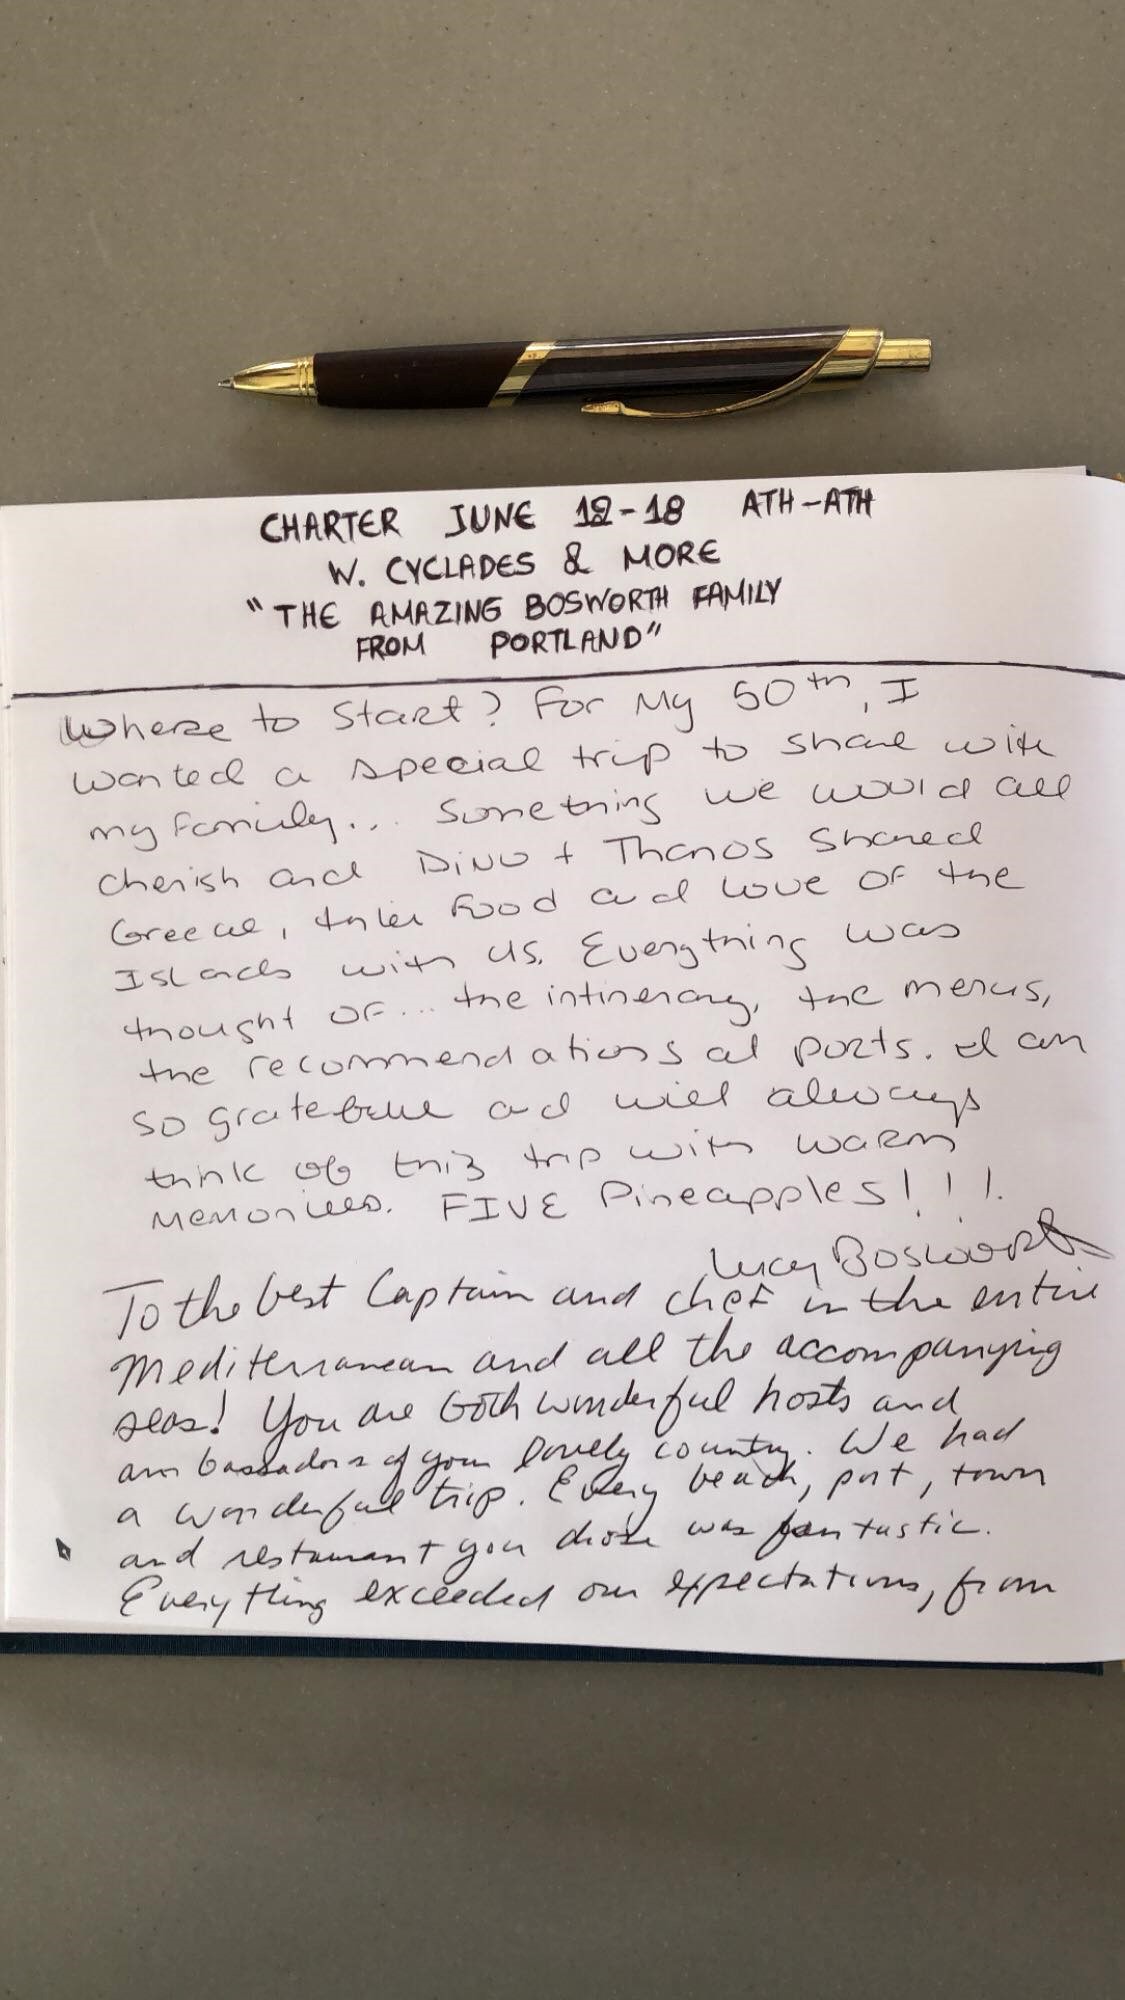 CHARTER JUNE 12-18 ATH-ATH
W. CYCLADES & MORE
"THE AMAZING BOSWORTH FAMILY
FROM PORTLAND"
Where to Start? For My 50th, I
wanted a special trip to share with
my family... Something we would all
cherish and Dino + Thanos shared
Greece, their food and love of the
Islands with us. Everything was
thought of... the intinerary, the menus,
the recommendations at ports. I am
so grateful and will always
think of this trip with warm
Memories. FIVE Pineapples!!!
Lucy Bosworth
To the best Captain and chef in the entire
Mediterranean and all the accompanying
seas! You are both wonderful hosts and
ambassadors of your lovely country. We had
a wonderful trip. Every beach, port, town
and restaurant you chose was fantastic.
Everything exceeded our expectations, from